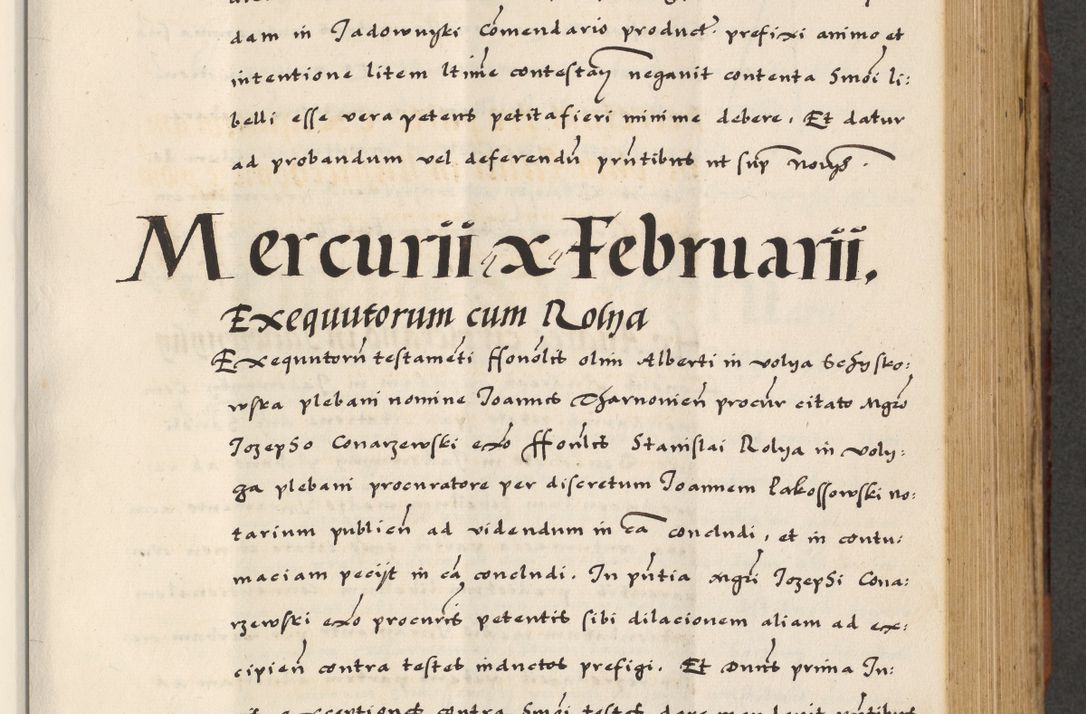 dam in Jadownyki Comendario product. prefixi animo et
intentione litem ltime contestan negavit contenta Smoi li:
belli esse vera petens petita fieri minime debere, Et datur
ad probandum vel deferendū prntibus ut sup
Mercurii x Februarii,
Exequutorum cum Rolya
Exequutorū testameti Honolis olim Alberti in volya
wska plebani nomine Joannes Tharnovien procur citato Mgro
Jozepho Conarzewski exo Honlis Stanislai Rolya in voly:
ga plebani procuratore per discretum Joannem Lakossowski no:
tarium publicū ad videndum in ca concludi, et in contu:
maciam pecijt in ca concludi. In pntia Mgri Jozephi Cona:
rzewski exo procuris petentis sibi dilacionem aliam ad ex:
cipien contra testes inductos prefigi. Et Duns prima Ju:
exceptiones contra Smoi testes dare